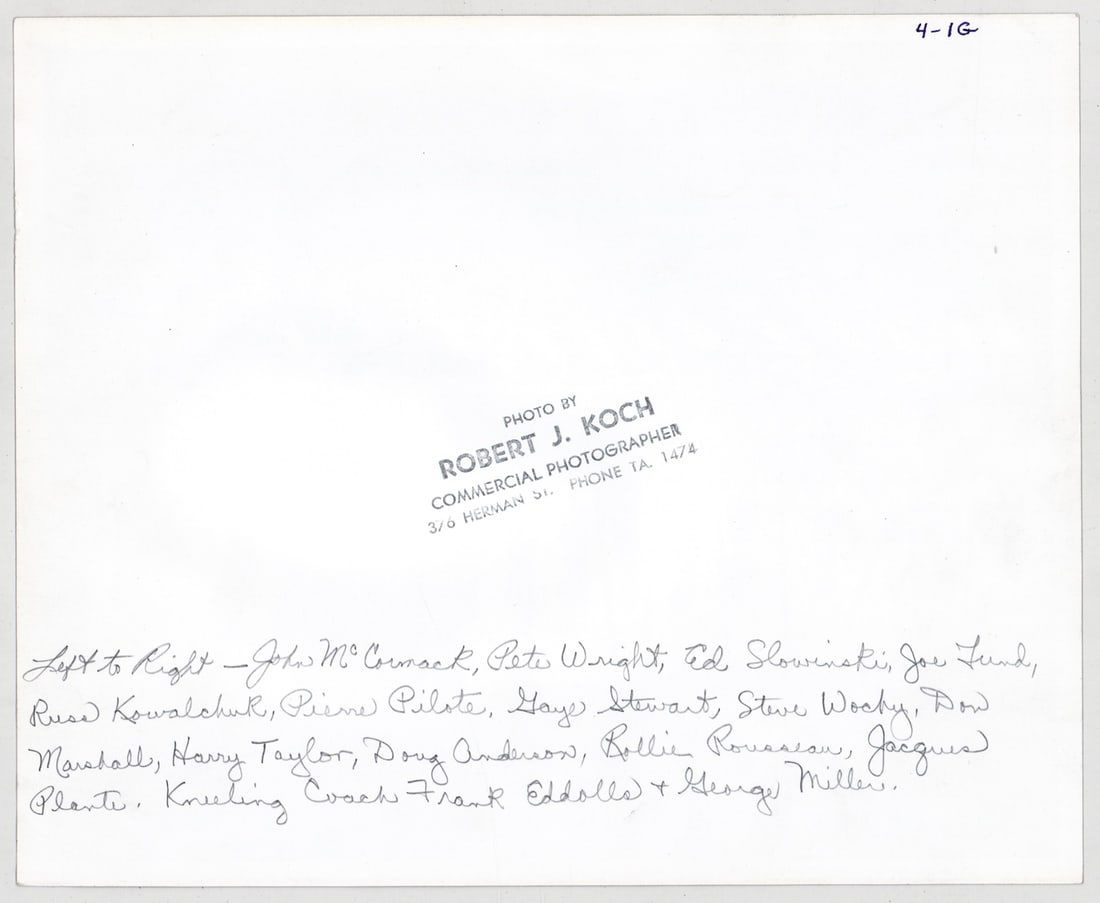 4-1G
PHOTO BY
ROBERT J. KOCH
COMMERCIAL PHOTOGRAPHER
376 HERMAN ST. PHONE TA. 1474
Left to Right – John McCormack, Pete Wright, Ed Slowinski, Joe Lund,
Russ Kowalchuk, Pierre Pilote, Gaye Stewart, Steve Wochy, Don
Marshall, Harry Taylor, Doug Anderson, Rollie Rousseau, Jacques
Plante. Kneeling Coach Frank Eddolls + George Miller.